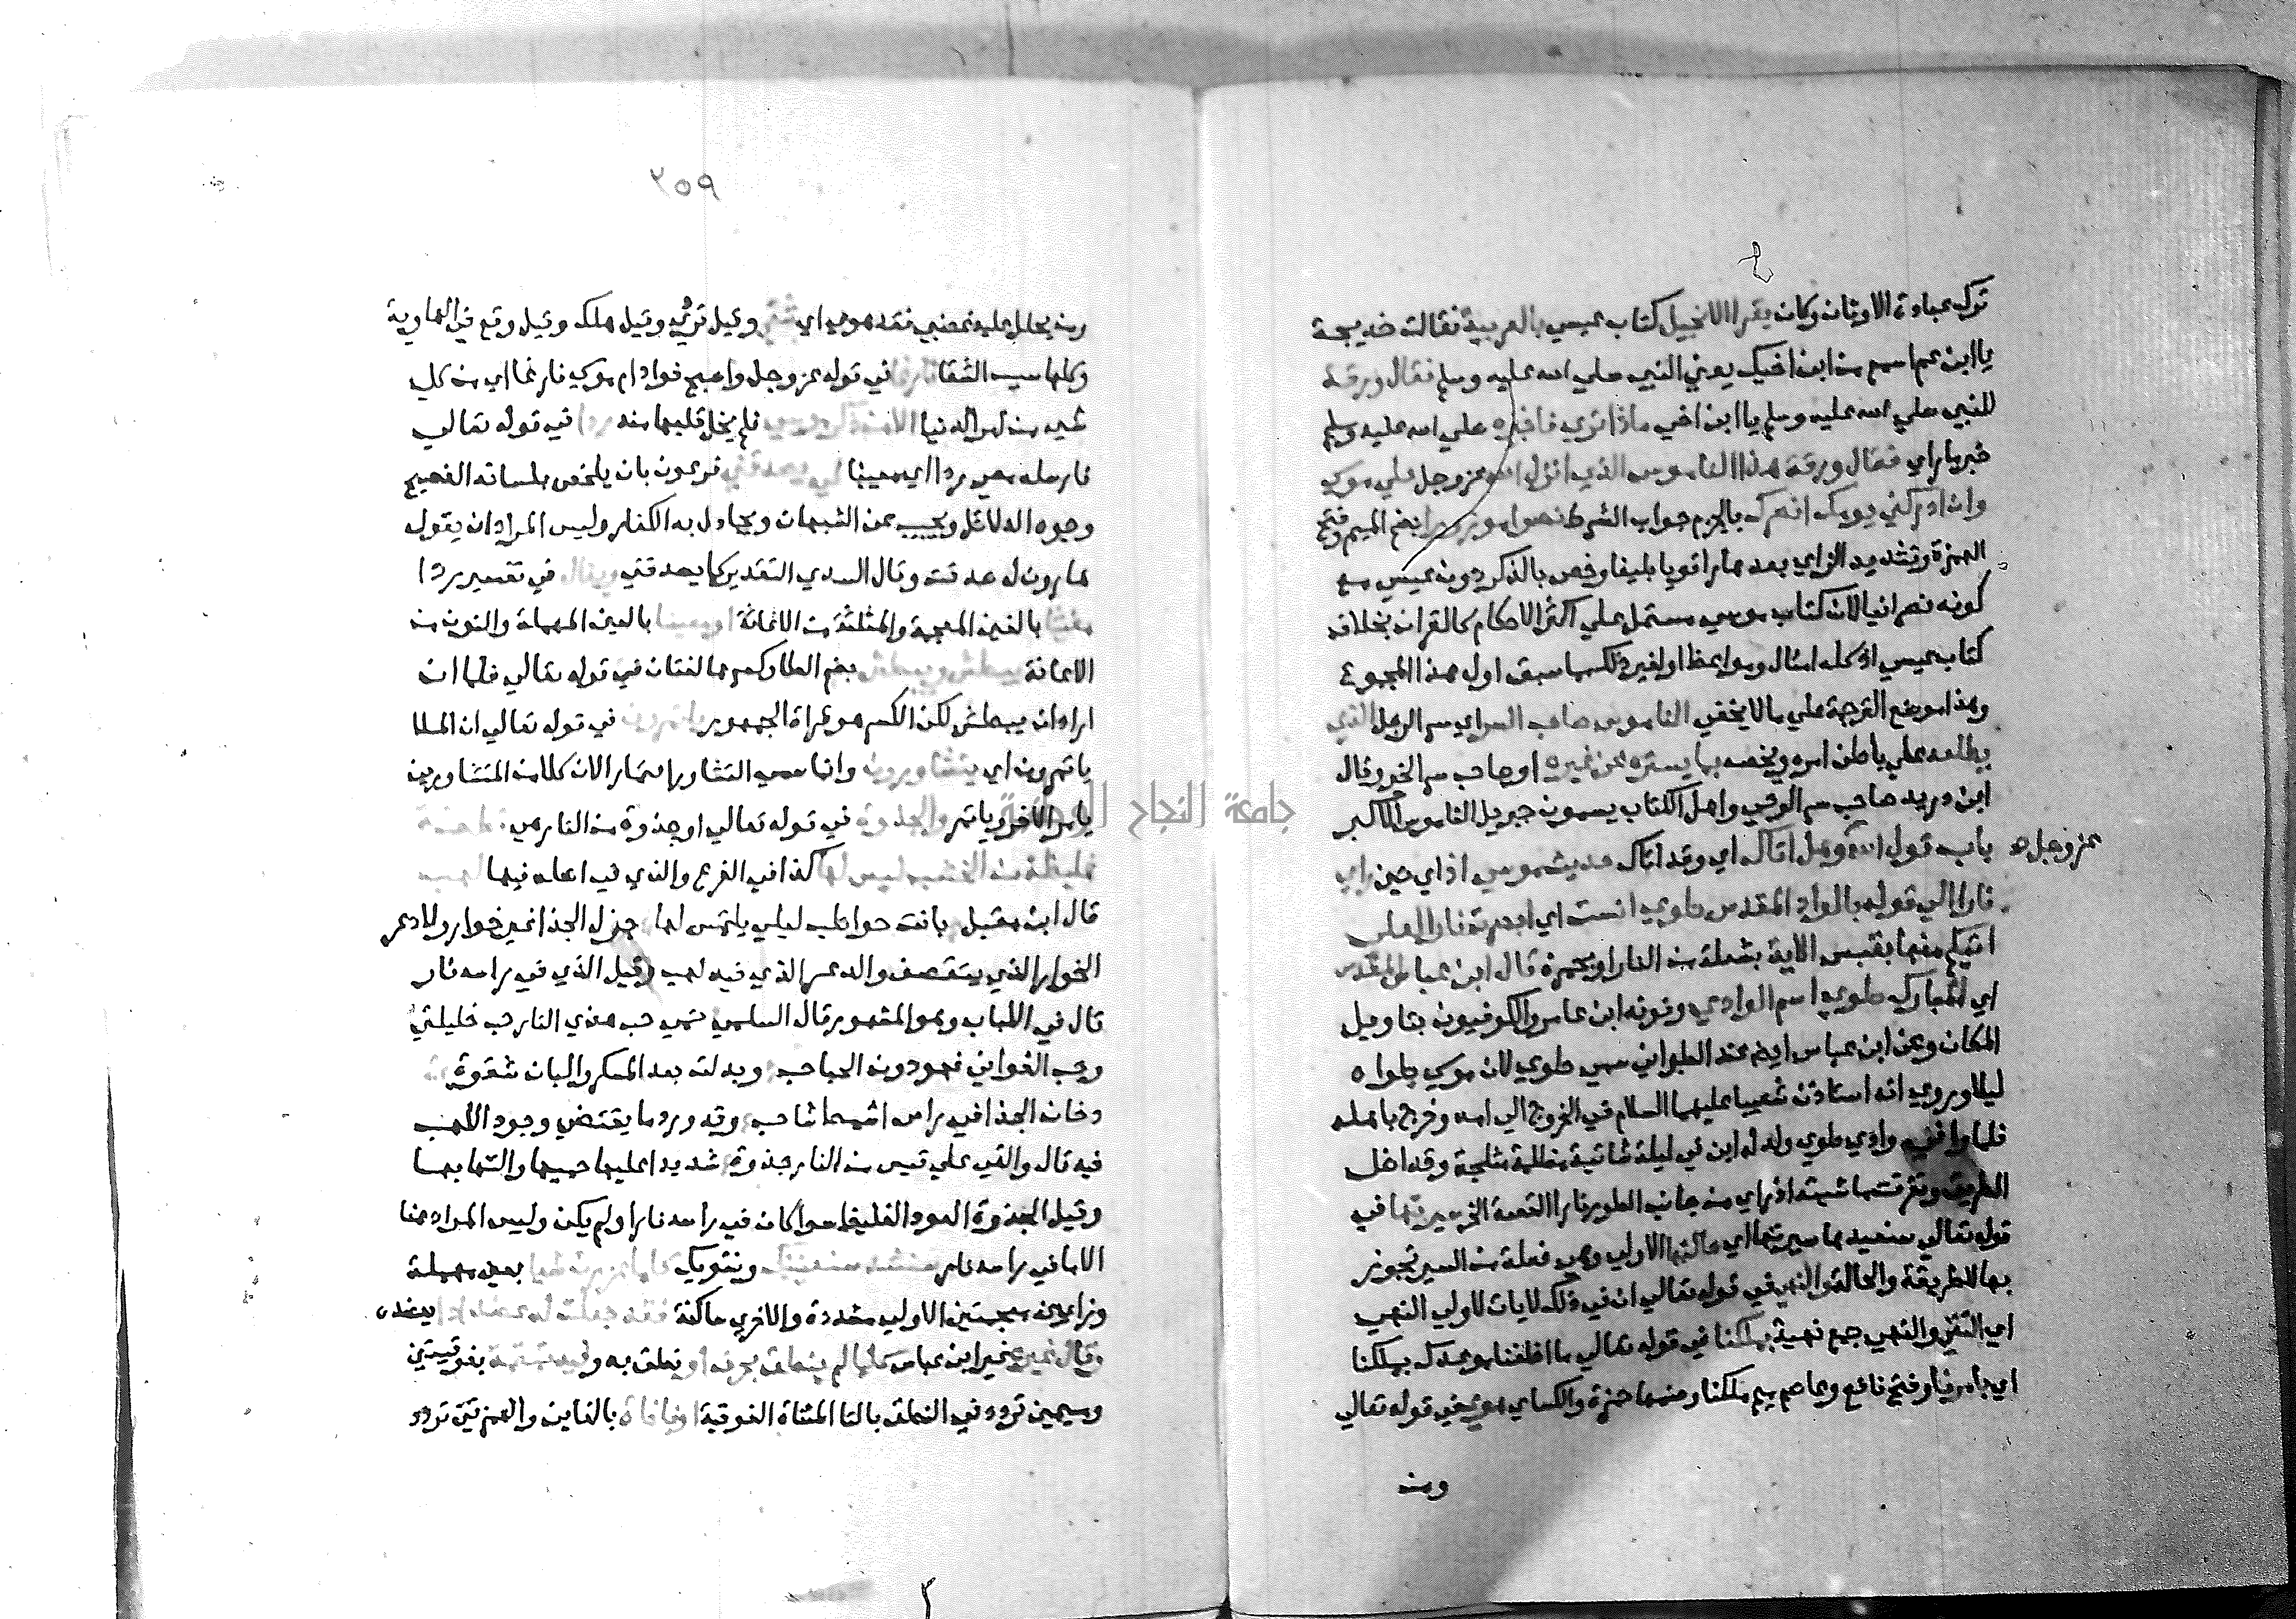 ترك عبادة الاوثان وكان يقرا الانجيل كتاب عيسي بالعربية فقالت خديجة
يا ابن عم اسمع من ابن اخيك يعني النبي صلي الله عليه وسلم فقال ورقة
للنبي صلي الله عليه وسلم يا ابن اخي ماذا تري فاخبره صلي الله عليه وسلم
خبر ما راي فقال ورقة هذا الناموس الذي انزل الله عز وجل علي موسي
وان ادركني يومك انصرك بالجزم جواب الشرط نصرا موزرا بضم الميم وفتح
الهمزة وتشديد الزاي بعدها را قويا بليغا وخص بالذكر دون عيسي مع
كونه نصرانيا لان كتاب موسي مشتمل علي اكثر الاحكام كالقران بخلاف
كتاب عيسي اذ كله امثال ومواعظ او لغير ذلك مما سبق اول هذا المجموع
وهذا موضع الترجمة علي ما لا يخفي الناموس صاحب السر اي سر الرجل الذي
يطلعه علي باطن امره ويخصه بما يستره عن غيره او صاحب سر الخير وقال
ابن دريد صاحب سر الوحي واهل الكتاب يسمون جبريل الناموس الاكبر
باب قول الله وهل اتاك اي وقد اتاك حديث موسي اذ اي حين راي
عز وجل صح
نارا الي قوله بالواد المقدس طوي انست اي ابصرت نارا لعلي
اتيكم منها بقبس الاية بشعلة من النار او بجمرة قال ابن عباس المقدس
اي المبارك طوي اسم الوادي ونونه ابن عامر والكوفيون بتاويل
المكان وعن ابن عباس ايضا عند الطبراني سمي طوي لان موسي طواه
ليلا وروي انه استاذن شعيبا عليهما السلام في الخروج الي امه وخرج باهله
فلما وافي وادي طوي ولد له ابن في ليلة شاتية مظلمة مثلجة وقد اضل
الطريق وتفرقت ماشيته اذ راي من جانب الطور نارا القصة الخ سيرتها في
قوله تعالي سنعيدها سيرتها اي حالتها الاولي وهي فعلة من السير تجوز
بها للطريقة والحالة والنهي في قوله تعالي ان في ذلك لايات لاولي النهي
اي التقي والنهي جمع نهية بملكنا في قوله تعالي ما اخلفنا موعدك بملكنا
اي بامرنا وفتح نافع وعاصم ميم ملكنا وضمها حمزة والكساي هوي في قوله تعالي
ومن
٢٥٩
ومن يحلل عليه غضبي فقد هوي اي شقي وقيل تردي وقيل هلك وقيل وقع في الهاوية
وكلها سبب الشقا فارغا في قوله عز وجل واصبح فواد ام موسي فارغا اي من كل
شي من امر الدنيا الا من ذكر موسي فلم يخل قلبها منه ردا في قوله تعالي
فارسله معي ردا اي معينا كي يصدقني فرعون بان يلخص بلسانه الفصيح
وجوه الدلائل ويجيب عن الشبهات ويجادل به الكفار وليس المراد ان يقول
هارون له صدقت وقال السدي التقدير كيما يصدقني ويقال في تفسير ردا
مغيثا بالغين المعجمة والمثلثة من الاغاثة او معينا بالعين المهملة والنون من
الاعانة يبطش ويبطش بضم الطا وكسرها لغتان في قوله تعالي فلما ان
اراد ان يبطش لكن الكسر هو قراة الجمهور ياتمرون في قوله تعالي ان الملا
ياتمرون اي يتشاورون وانما سمي التشاور ايتمارا لان كلا من المتشاورين
يامر الاخر وياتمر والجذوة في قوله تعالي او جذوة من النار هي قطعة
غليظة من الخشب ليس لها كذا في الفرع والذي في اصله فيها لهب
قال ابن مقبل باتت حواطب ليلي يلتمس لها جزل الجذا غير خوار ولا دعر
الخوار الذي يتقصف والدعر الذي فيه لهب وقيل الذي في راسه نار
قال في اللباب وهو المشهور قال السلمي حمي حب هذي النار حب خليلتي
وحب الغواني فهو دون الحباحب وبدلت بعد المسك والبان شقوة
دخان الجذا في راس اشمط شاحب وقد ورد ما يقتضي وجود اللهب
فيه قال والقي علي قبس من النار جذوة شديدا عليها حميها والتهابها
وقيل الجذوة العود الغليظ سوا كان في راسه نار او لم يكن وليس المراد هنا
الا ما في راسه نار سنشد سنعينك ونقويك كلما عززت شيا بعين مهملة
وزايين معجمتين الاولي مشددة والاخري ساكنة فقد جعلت له عضدا يعضده
وقال غيره غير ابن عباس كلما لم ينطق بحرف او نطق به وفيه تمتمة بفوقيتين
وميمين تردد في النطق بالتا المثناة الفوقية او فافاة بالفاين والهمزتين تردد
جامعة النجاح الوطنية